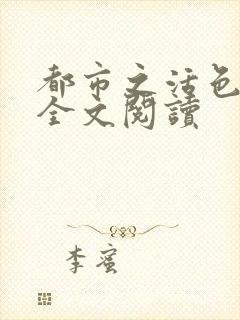 都市之活色
全文閱讀
李蜜